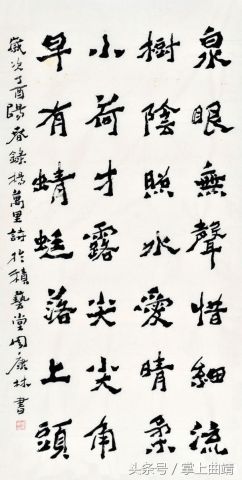 泉眼無聲惜細流
樹陰照水愛晴柔
小荷才露尖尖角
早有蜻蜓落上頭
歲次丁酉陽春錄楊萬里詩於積藝堂周康林書
头条号／掌上曲靖